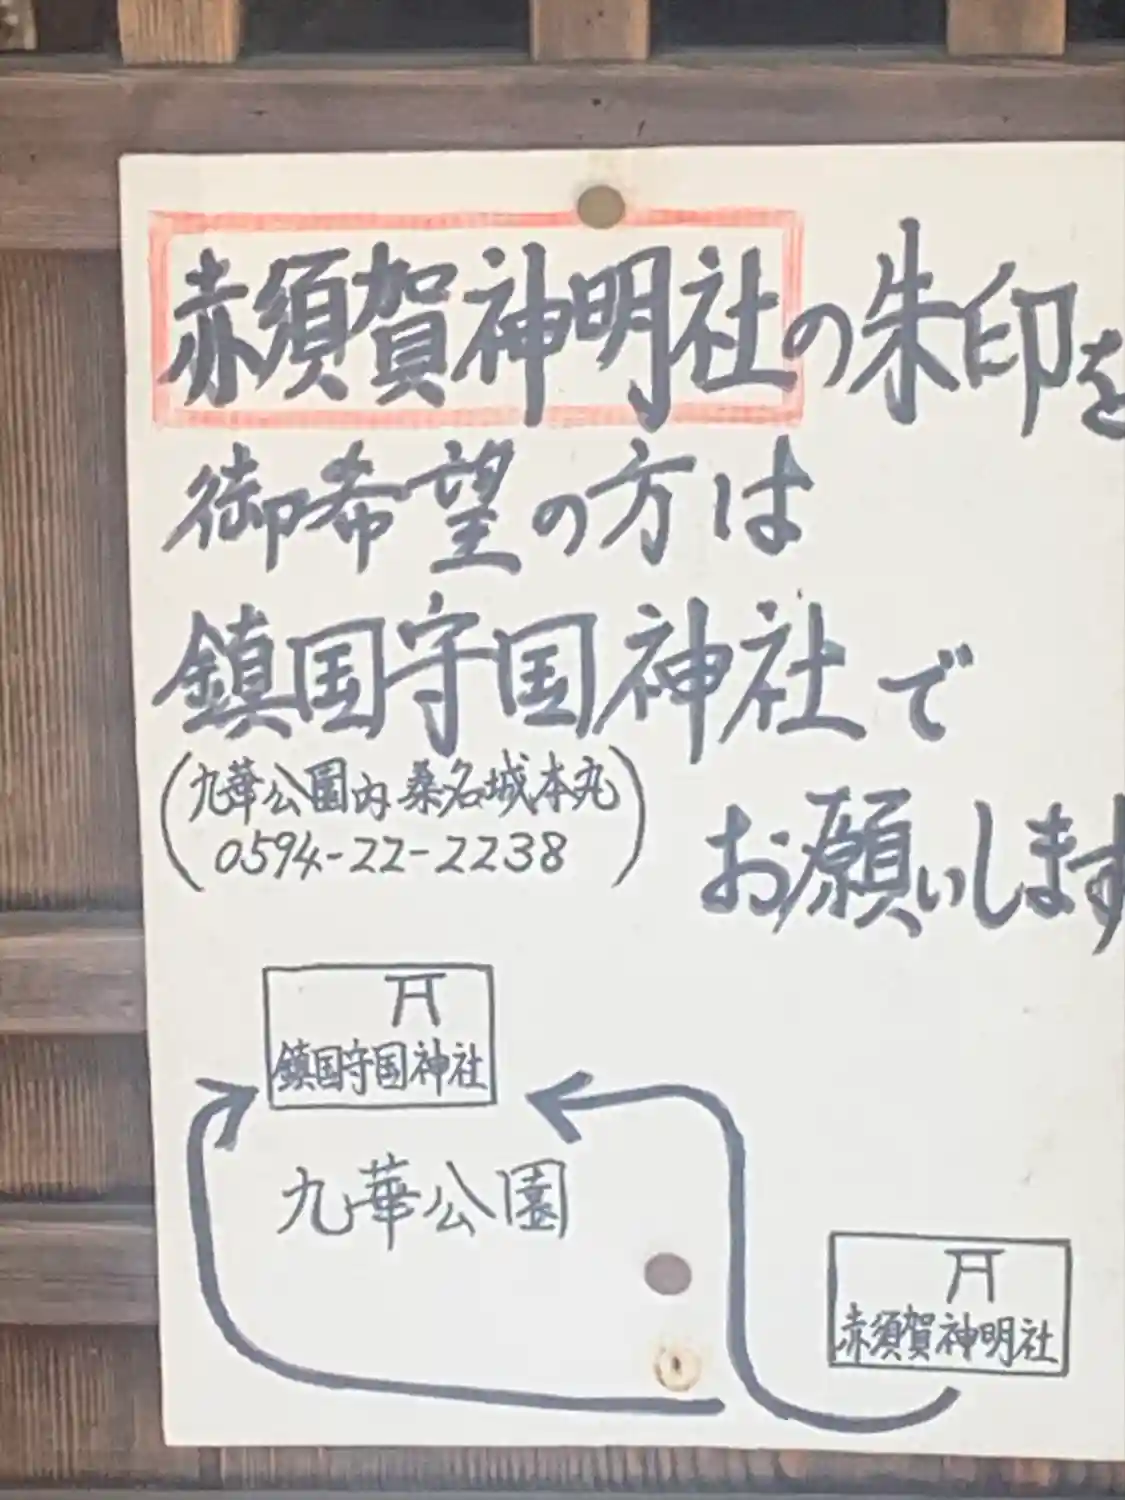 赤須賀神明社の朱印を
御希望の方は
鎮国守国神社で
(九華公園内 桑名城本丸
0594-22-2238)
お願いします
鎮国守国神社
九華公園
赤須賀神明社